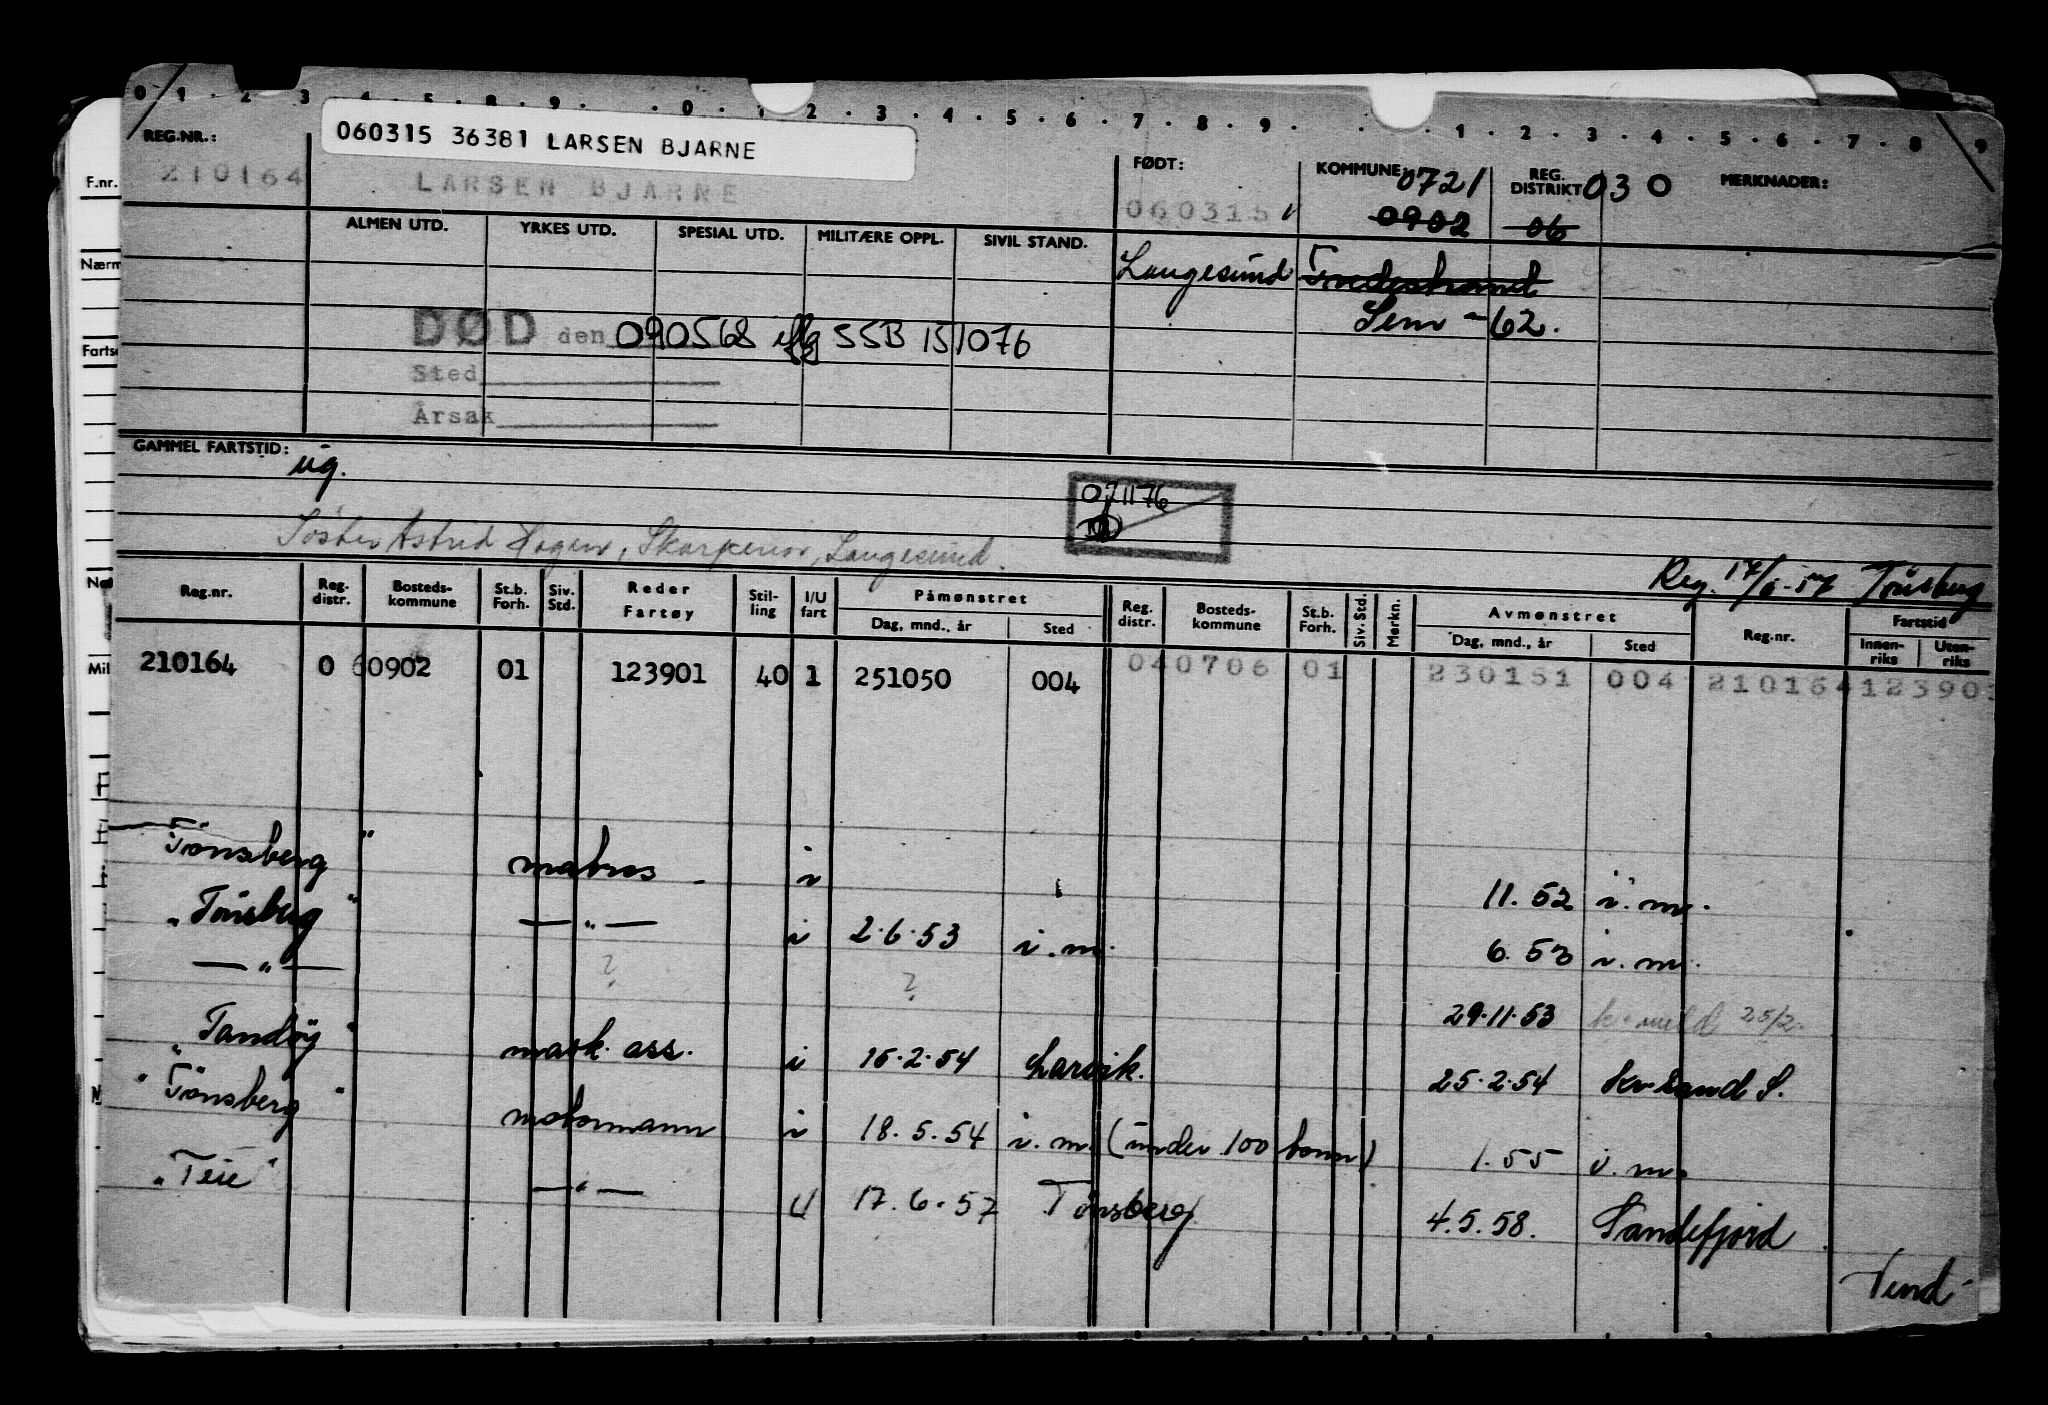 0 1 2 3 4 5 8 9 . . 0 . 1 2 . 3 . 4 . 5 . 6 . 7 . 8 . 9 . . . 1 . 2 . 3 . 4 . 5 . 6 . 7 . 8 . 9
060315 36381 LARSEN BJARNE
REG.NR.: FØDT: KOMMUNE 0721 REG. DISTRIKT 030 MERKNADER:
210164 LARSEN BJARNE 060315 0902 06
ALMEN UTD. YRKES UTD. SPESIAL UTD. MILITÆRE OPPL. SIVIL STAND.
Langesund Tvedestrand
Sem - 62.
DØD den 090568 iflg SSB 151076
Sted
Årsak
GAMMEL FARTSTID: ug.
071176
Søster Astrid Hagen, Langesund.
Reg. 17/6-57 Tönsberg
Reg.nr. Reg. distr. Bosteds- kommune St.b. Forh. Siv. Std. Reder Fartøy Stil- ling I/U fart Påmønstret Dag, mnd., år Sted Reg. distr. Bosteds- kommune St.b. Forh. Siv. Std. Merkn. Avmønstret Dag, mnd., år Sted Reg.nr. Fartstid Innen- riks Uten- riks
210164 0 60902 01 123901 40 1 251050 004 040706 01 230151 004 210164 123901
"Tönsberg" matros - i 11.52 i.m.
"Tönsberg" — " — i 2.6.53 i.m. 6.53 i.m.
— " — ? ? 29.11.53 25/2.
"Tandöy" mask. ass. i 15.2.54 Larvik. 25.2.54 Kr.sand S.
"Tönsberg" motormann i 18.5.54 i.m. (under 100 tonn) 1.55 i.m.
"Teie" — " — U 17.6.57 Tønsberg 4.5.58. Sandefjord.
Vend
F.nr.
Nærm
Fartsc
Mil